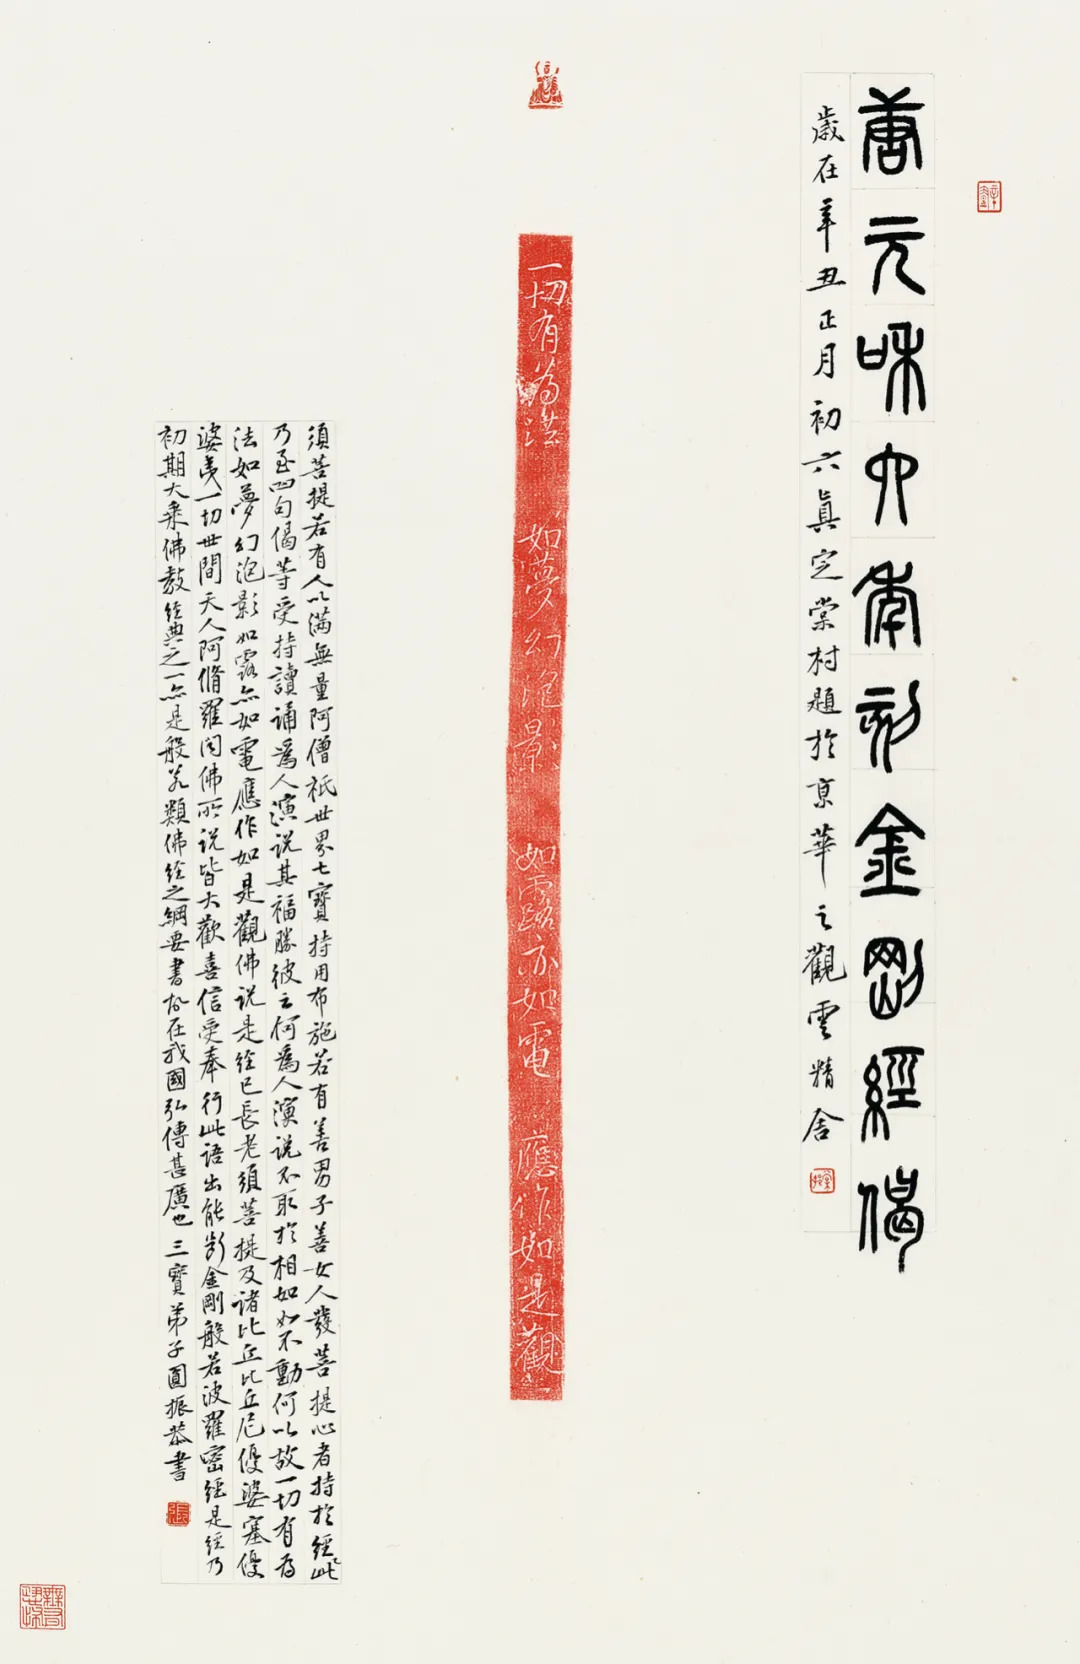 唐元和六年刻金剛經偈
歲在辛丑正月初六眞定棠村題於京華之觀雲精舍
一切有為法 如夢幻泡影 如露亦如電 應作如是觀
須菩提若有人以滿無量阿僧祇世界七寶持用布施若有善男子善女人發菩提心者持於經此
乃至四句偈等受持讀誦爲人演說其福勝彼云何爲人演說不取於相如如不動何以故一切有為
法如夢幻泡影如露亦如電應作如是觀佛說是經已長老須菩提及諸比丘比丘尼優婆塞優
婆夷一切世間天人阿脩羅闻佛所說皆大歡喜信受奉行此語出能斷金剛般若波羅密經是經乃
初期大乘佛教經典之一亦是般若類佛經之綱要書故在我國弘傳甚廣也三寶弟子圓振恭書